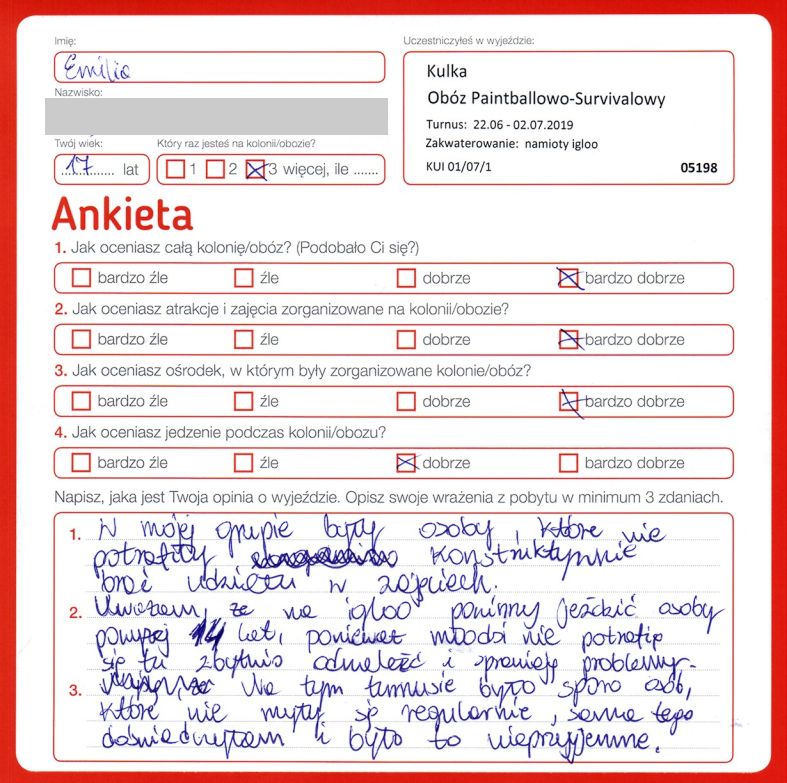 Imię:
Emilia
Nazwisko:
Twój wiek:
17 lat
Który raz jesteś na kolonii/obozie?
1 2 3 więcej, ile .......
Uczestniczyłeś w wyjeździe:
Kulka
Obóz Paintballowo-Survivalowy
Turnus: 22.06 - 02.07.2019
Zakwaterowanie: namioty igloo
KUI 01/07/1 05198
Ankieta
1. Jak oceniasz całą kolonię/obóz? (Podobało Ci się?)
bardzo źle źle dobrze bardzo dobrze
2. Jak oceniasz atrakcje i zajęcia zorganizowane na kolonii/obozie?
bardzo źle źle dobrze bardzo dobrze
3. Jak oceniasz ośrodek, w którym były zorganizowane kolonie/obóz?
bardzo źle źle dobrze bardzo dobrze
4. Jak oceniasz jedzenie podczas kolonii/obozu?
bardzo źle źle dobrze bardzo dobrze
Napisz, jaka jest Twoja opinia o wyjeździe. Opisz swoje wrażenia z pobytu w minimum 3 zdaniach.
1. W mojej grupie były osoby, które nie
potrafiły konstruktywnie
brać udziału w zajęciach.
2. Uważam, że na igloo powinny jeździć osoby
powyżej 14 lat, ponieważ młodzi nie potrafią
się tu zbytnio odnaleźć i sprawiają problemy.
3. Na tym turnusie było sporo osób,
które nie myły się regularnie, sama tego
doświadczyłam i było to nieprzyjemne.